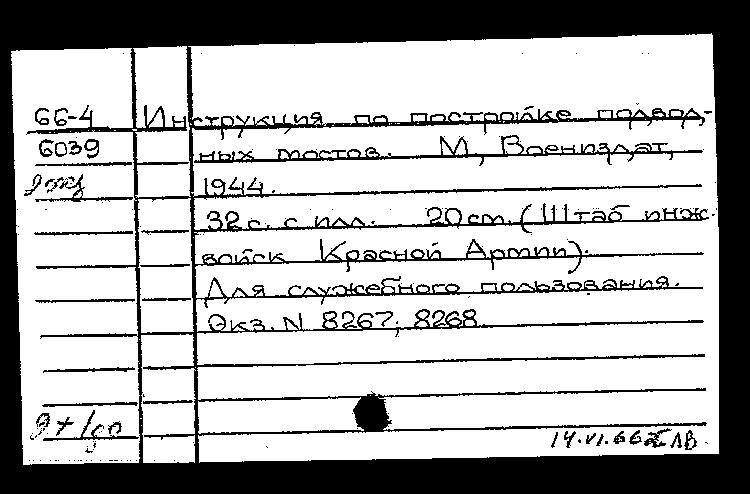 66-4 Инструкция по постройке подвод-
6039 ных мостов. М, Воениздат,
2 экз 1944.
32 с. с илл. 20 см. (Штаб инж.
войск Красной Армии).
Для служебного пользования.
Экз. N 8267, 8268
14.VI.66